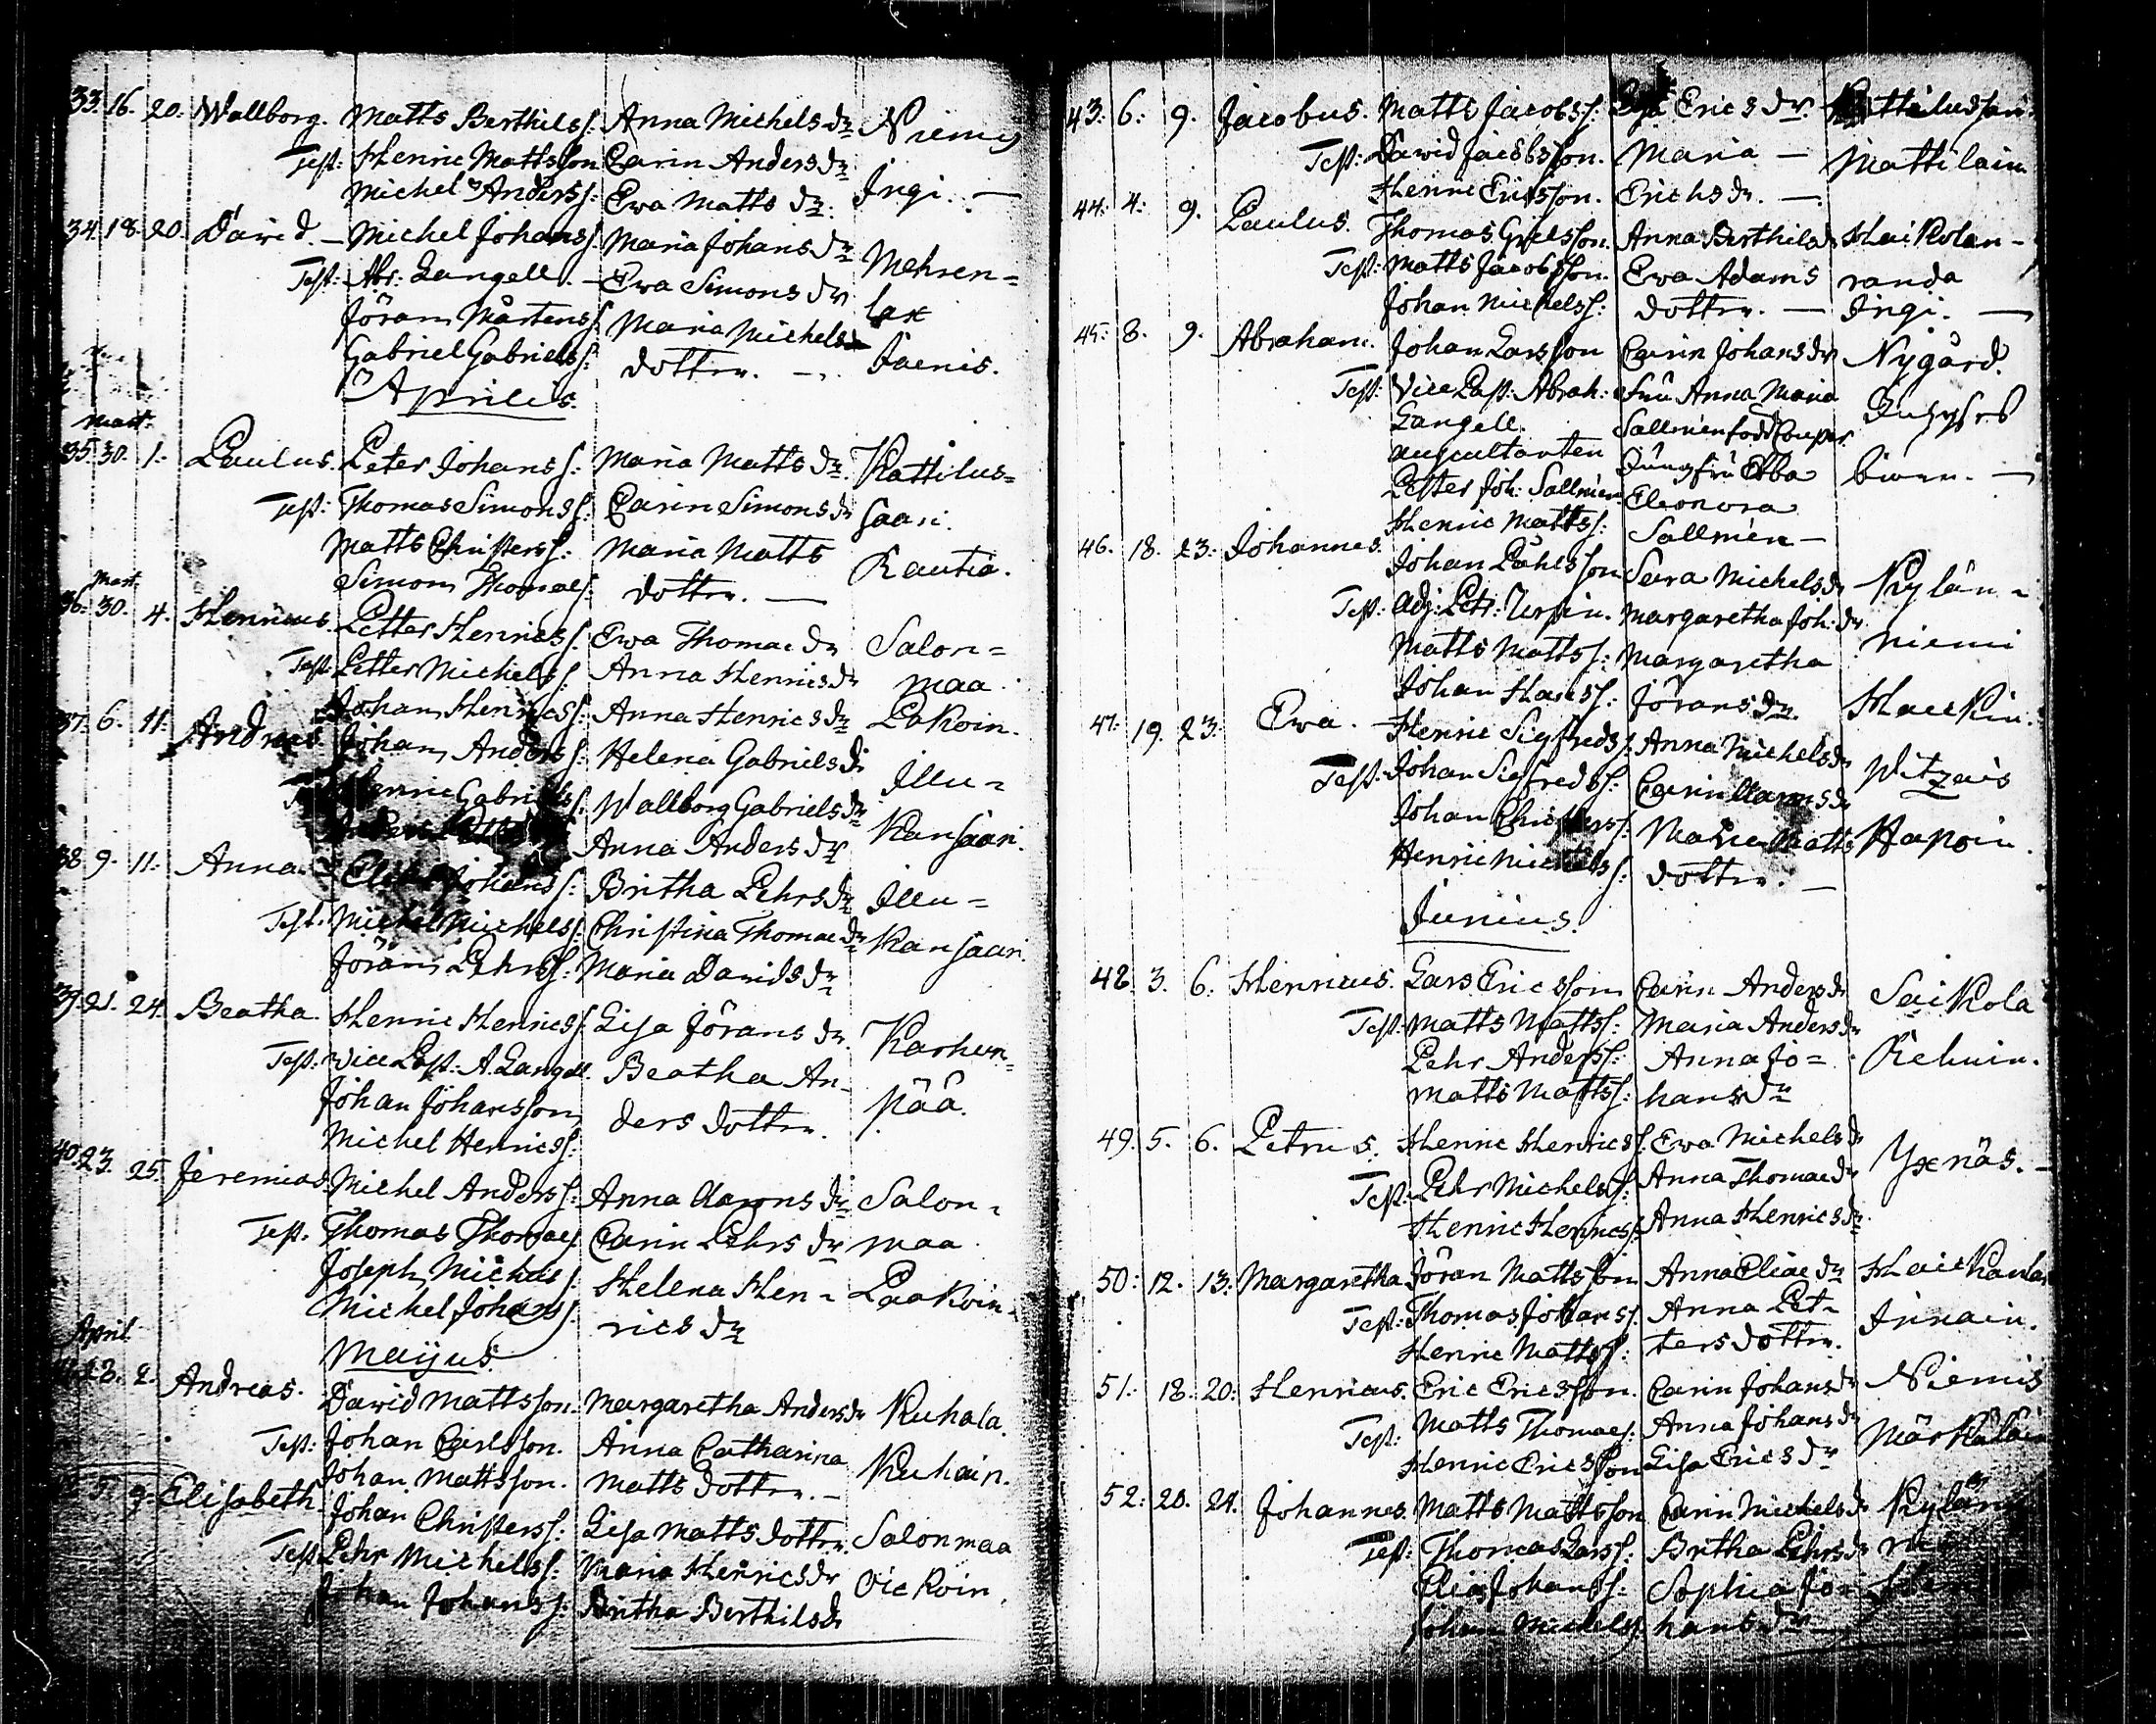 33. 16. 20. Wallborg. Matts Berthilss: Anna Michels dr Niemis
Test: Henric Mattsson Carin Anders dr
Michel Anderss: Ewa Matts dr. Ingi. —
34. 18. 20. David. — Michel Johanss: Maria Johans dr Mehren=
Test: Abr: Langell. — Ewa Simons dr lax
Jöran Mårtenss: Maria Michels
Gabriel Gabrielss: dotter. — Jaenis.
Aprilis.
Mart.
35. 30. 1. Paulus. Peter Johanss: Maria Matts dr. Kattilus=
Test: Thomas Simonss: Carin Simons dr saari.
Matts Christerss: Maria Matts
Simon Thomaes: dotter. — Rautia.
Mart.
36. 30. 4. Henricus. Petter Henricss: Ewa Thomae dr Salon=
Test: Petter Michelss: Anna Henrics dr maa.
Johan Henricss: Anna Henrics dr Pakoin.
37. 6. 11. Andreas. Johan Anderss: Helena Gabriels dr Illu=
Henric Gabrielss: Wallborg Gabriels dr Kansaari.
Anna Anders dr
38. 9. 11. Anna. Johanss: Britha Pehrs dr Illu=
Test: Michel Michelss: Christina Thomae dr Kansaari.
Jöran Pehrss: Maria Davids dr
39. 21. 24. Beatha. Henric Henricss: Lisa Jörans dr. Karhun=
Test: Vice Past: A. Langell. Beatha An-
Johan Johansson ders dotter. pää.
Michel Henricss:
40. 23. 25. Jeremias. Michel Anderss: Anna Aarons dr Salon=
Test. Thomas Thomaes: Carin Pehrs dr maa
Joseph Michelss: Helena Hen= Paakoin.
Michel Johanss: rics dr
Majus
April
23. 2. Andreas. David Mattsson. Margaretha Anders dr Kuhala.
Test: Johan Carlsson. Anna Catharina
Johan Mattsson. Matts dotter. — Kuhain.
9. Elisabeth. Johan Christerss: Lisa Matts dotter. Salonmaa
Test Pehr Michelss: Maria Henrics dr
Johan Johanss: Britha Berthils dr Oickoin.
43. 6. 9. Jacobus. Matts Jacobss: Erics dr. Kattilussari.
Test: David Jacobsson. Maria — Mattilain
Henric Ericsson. Erichs dr. —
44. 4. 9. Paulus. Thomas Grelsson. Anna Berthils dr Haikolan-
Test: Matts Jacobsson. Ewa Adams randa
Johan Michelss: dotter. — Ingi. —
45. 8. 9. Abraham. Johan Larsson Carin Johans dr Nygård.
Test: Vice Past: Abrah: Fru Anna Maria
Langell. Sallmén född
Auscultanten Jungfru Ebba
Petter Joh: Sallmén Eleonora
Henric Mattss: Sallmén —
46. 18. 23. Johannes. Johan Påhlsson Sara Michels dr Kylän-
Test: Adj: Petr: Urpin. Margaretha Joh: dr niemi
Matts Mattss: Margaretha
Johan Hanss: Jörans dr. Hackin.
47. 19. 23. Ewa. Henric Sigfredss: Anna Michels dr Pitzais
Test: Johan Sigfredss: Carin Aarons dr
Johan Christerss: Maria Matts Hapoin.
Henric Michelss: dotter. —
Junius.
48. 3. 6. Henricus. Lars Ericsson Carin Anders dr Saikola
Test: Matts Mattss: Maria Anders dr
Pehr Anderss: Anna Jo= Rehuin.
Matts Mattss: hans dr
49. 5. 6. Petrus. Henric Henricss: Ewa Michels dr Yxnäs. —
Test: Pehr Michelss: Anna Thomae dr
Henric Henricss: Anna Henrics dr.
50. 12. 13. Margaretha Jöran Mattsson Anna Eliae dr
Test: Thomas Johanss: Anna Pet= Innain.
Henric Mattss: ters dotter.
51. 18. 20. Henricus. Eric Ericsson. Carin Johans dr Niemis
Test: Matts Thomaes: Anna Johans dr
Henric Ericsson Lisa Erics dr
52. 20. 24. Johannes. Matts Mattsson Carin Michels dr Kylän
Test: Thomas Larss: Britha Pehrs dr
Elias Johanss: Sophia Jo=
Johan Michelss: hans dr